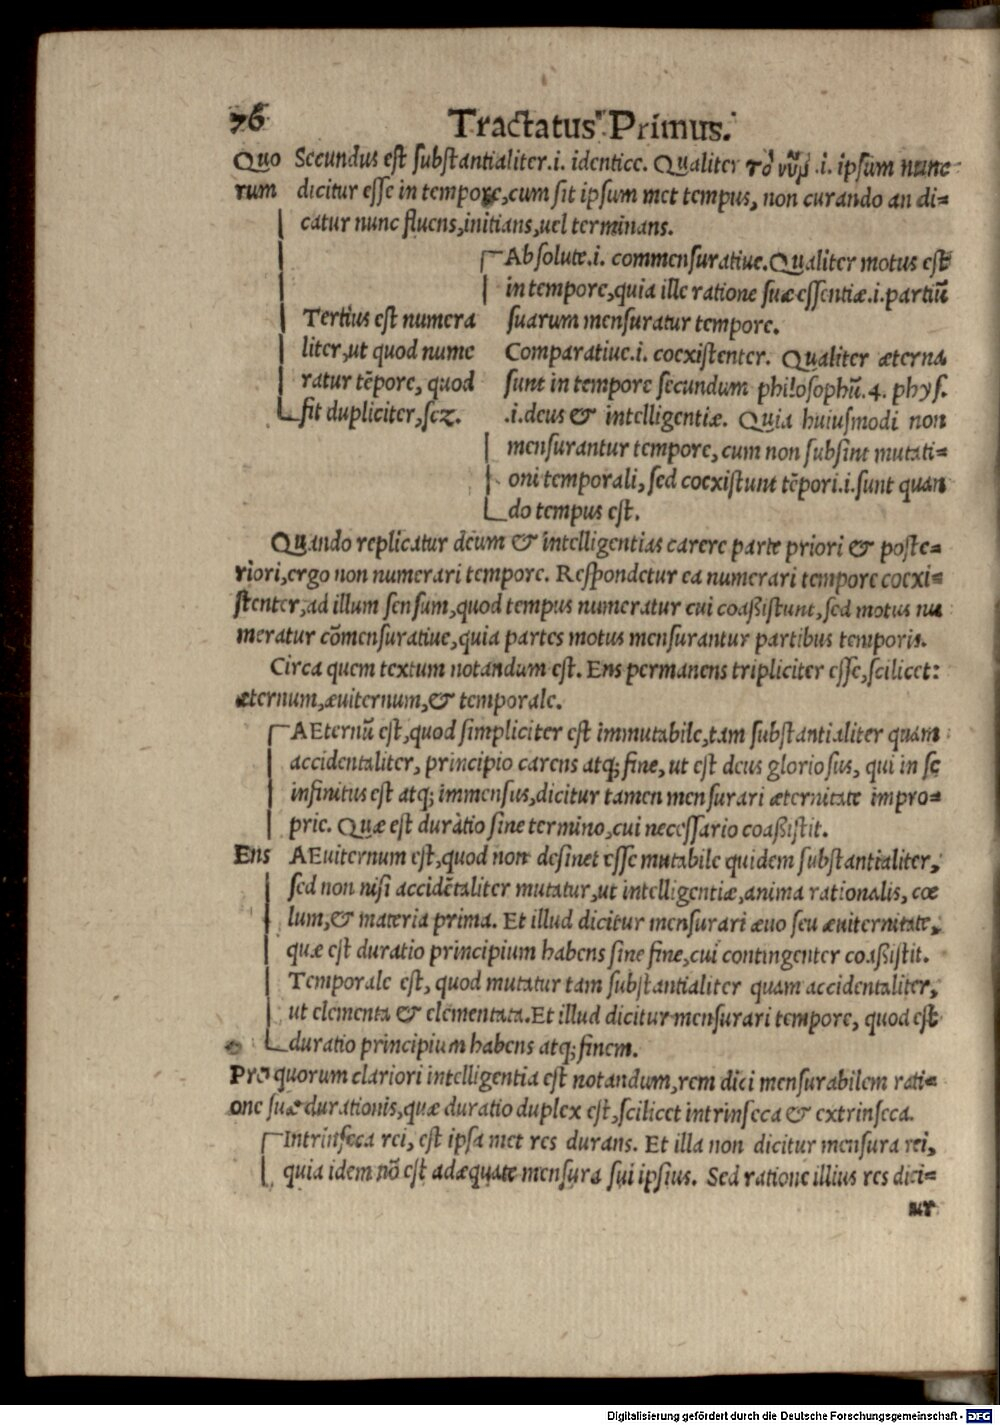 76
Tractatus Primus.
Quo Secundus est substantialiter.i. identice. Qualiter τὸ νῦν .i. ipsum nunc
rum dicitur esse in tempore,cum sit ipsum met tempus, non curando an di=
catur nunc fluens,initians,uel terminans.
Tertius est numera
liter,ut quod nume
ratur tēpore, quod
fit dupliciter,scz.
Absolute.i. commensuratiue.Qualiter motus est
in tempore,quia ille ratione suæ essentiæ.i.partiū
suarum mensuratur tempore.
Comparatiue.i. coexistenter. Qualiter æterna
sunt in tempore secundum philosophū.4. phys.
.i.deus & intelligentiæ. Quia huiusmodi non
mensurantur tempore, cum non subsint mutati=
oni temporali, sed coexistunt tēpori.i.sunt quan
do tempus est.
Quando replicatur deum & intelligentias carere parte priori & poste=
riori,ergo non numerari tempore. Respondetur ea numerari tempore coexi=
stenter,ad illum sensum,quod tempus numeratur cui coaßistunt, sed motus nu
meratur cōmensuratiue,quia partes motus mensurantur partibus temporis.
Circa quem textum notandum est. Ens permanens tripliciter esse,scilicet:
æternum,æuiternum,& temporale.
AEternū est,quod simpliciter est immutabile,tam substantialiter quam
accidentaliter, principio carens atq; fine, ut est deus gloriosus, qui in se
infinitus est atq; immensus,dicitur tamen mensurari æternitate impro=
prie. Quæ est duratio sine termino,cui necessario coaßistit.
Ens AEuiternum est,quod non desinet esse mutabile quidem substantialiter,
sed non nisi accidētaliter mutatur,ut intelligentiæ,anima rationalis, cœ
lum,& materia prima. Et illud dicitur mensurari æuo seu æuiternitate,
quæ est duratio principium habens sine fine,cui contingenter coaßistit.
Temporale est, quod mutatur tam substantialiter quam accidentaliter,
ut elementa & elementata.Et illud dicitur mensurari tempore, quod est
duratio principium habens atq; finem.
Pro quorum clariori intelligentia est notandum,rem dici mensurabilem rati=
one suæ durationis,quæ duratio duplex est,scilicet intrinseca & extrinseca.
Intrinseca rei, est ipsa met res durans. Et illa non dicitur mensura rei,
quia idem nō est adæquate mensura sui ipsius. Sed ratione illius res dici=
tur
Digitalisierung gefördert durch die Deutsche Forschungsgemeinschaft - DFG